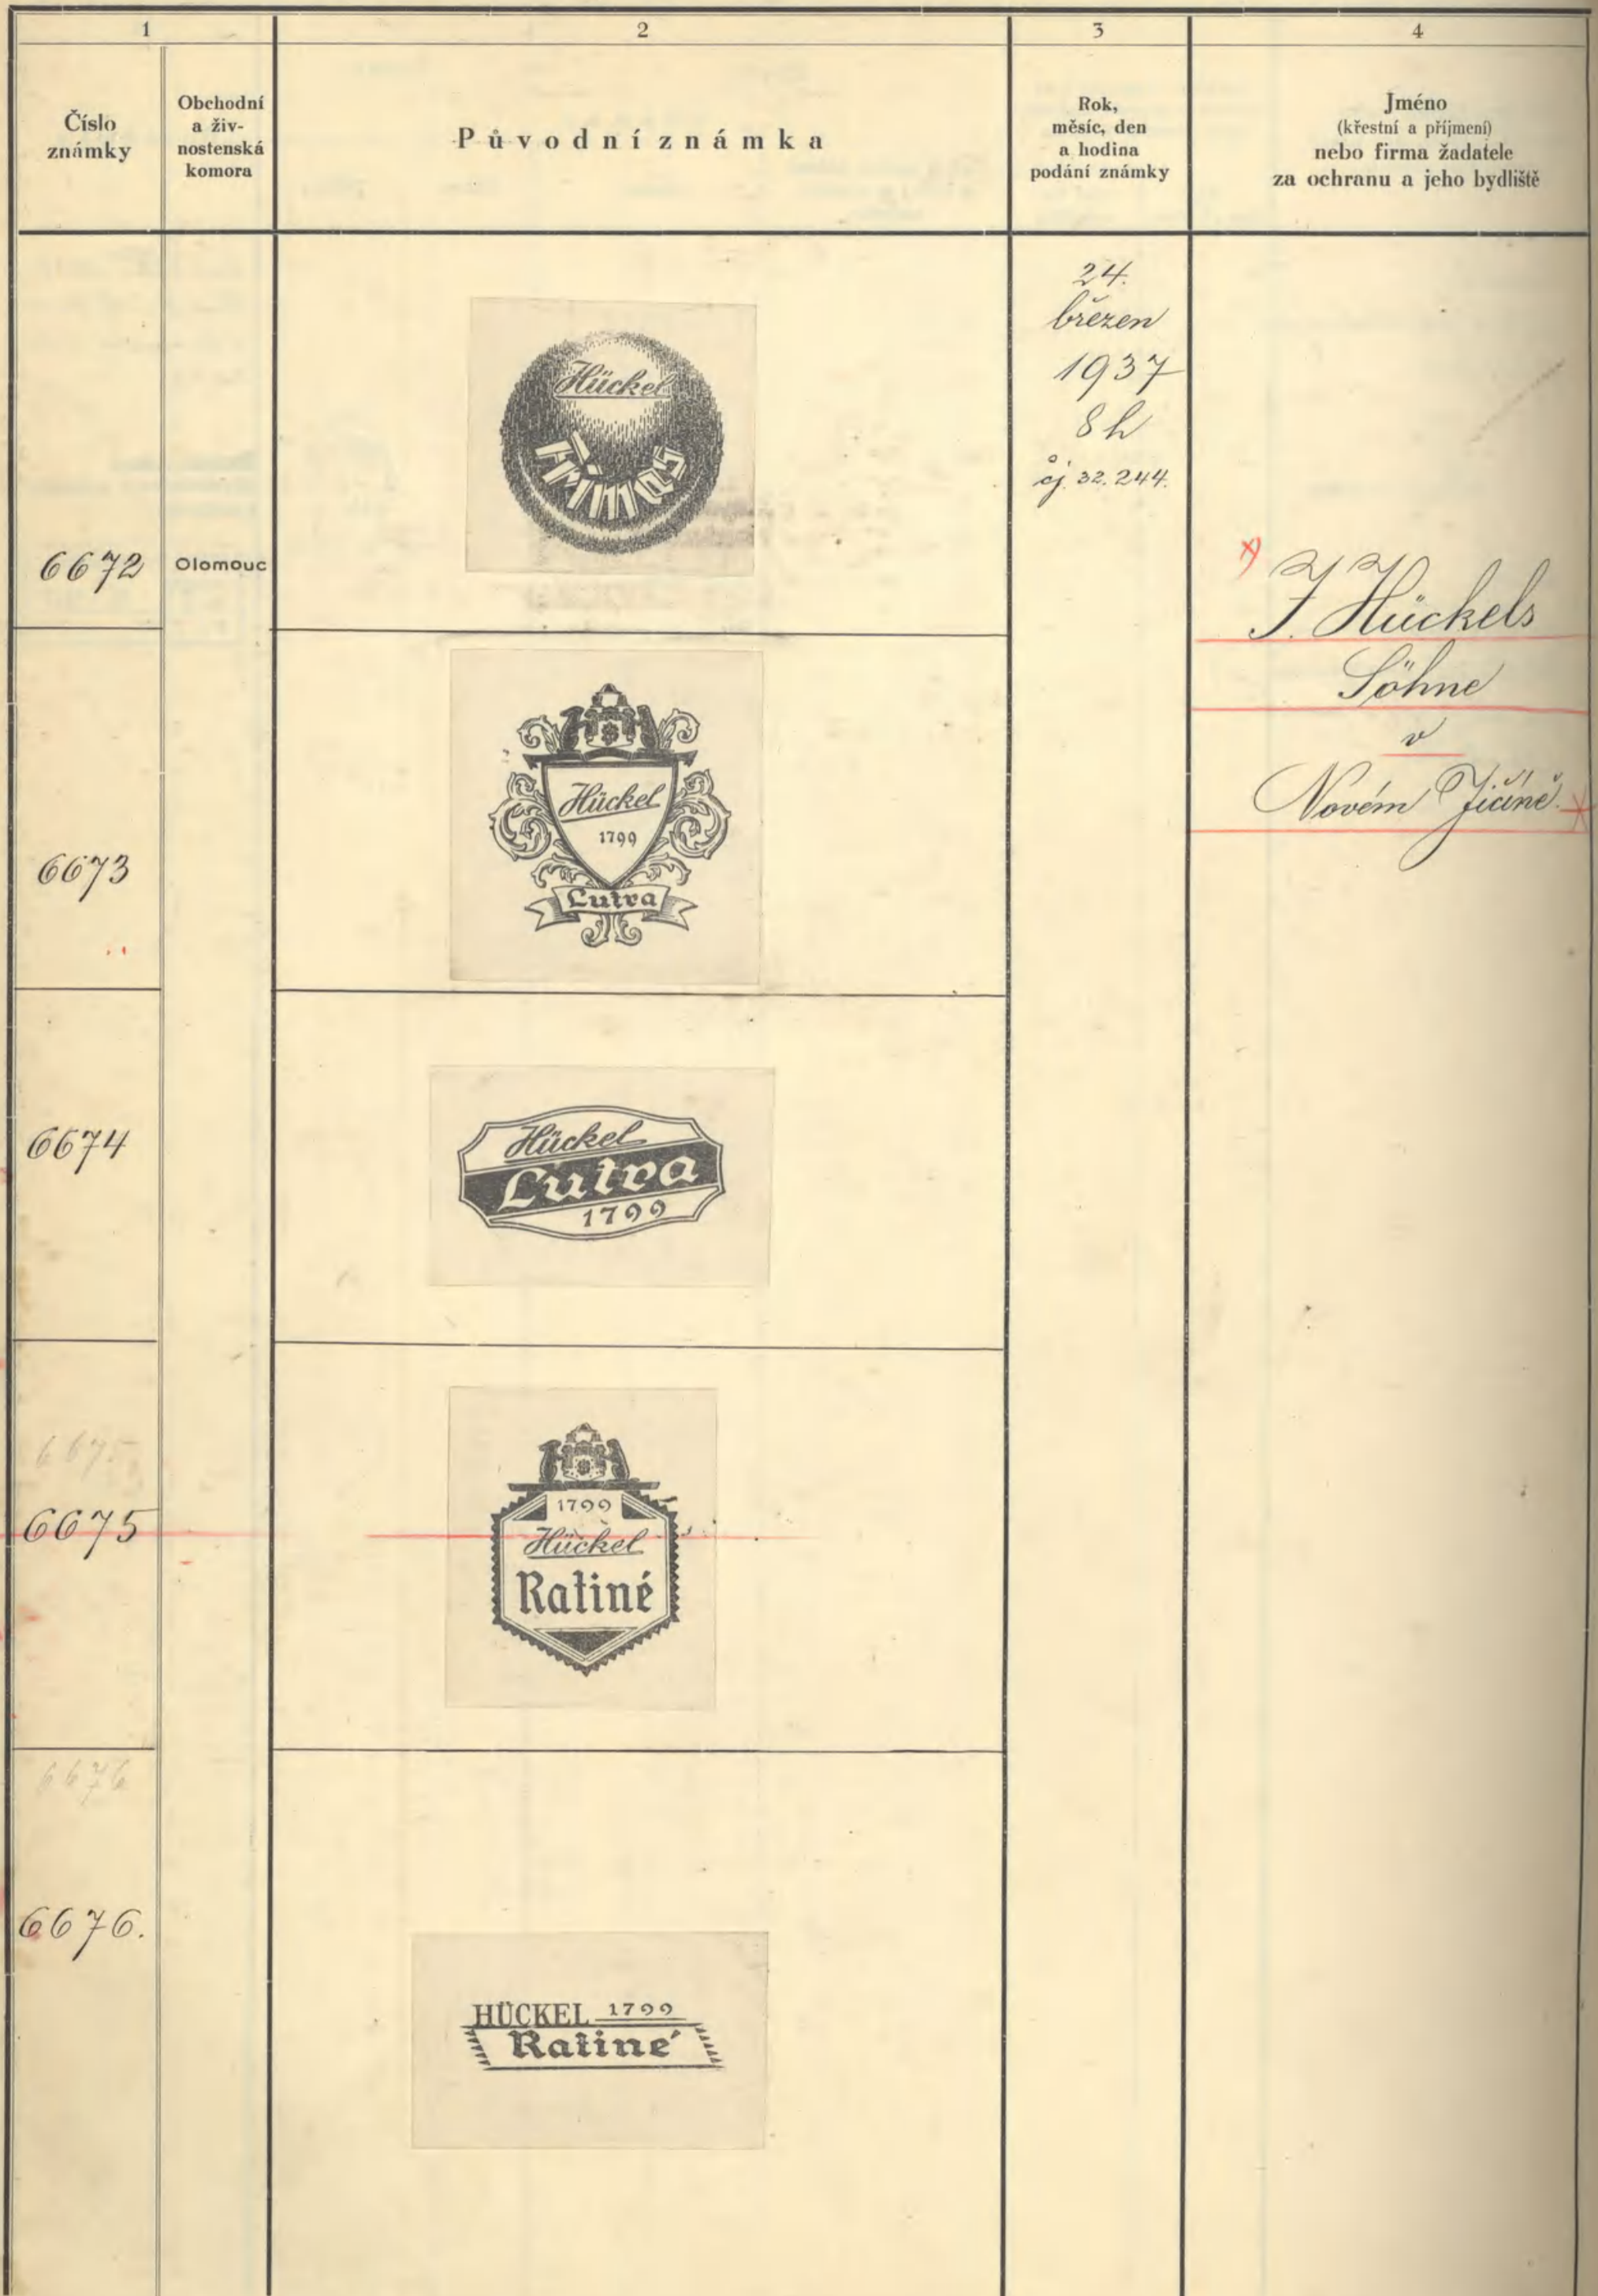 1
2
3
4
Číslo
známky
Obchodní
a živ-
nostenská
komora
Původní známka
Rok,
měsíc, den
a hodina
podání známky
Jméno
(křestní a příjmení)
nebo firma žadatele
za ochranu a jeho bydliště
6672
Olomouc
Hückel
24.
březen
1937
8 h
čj. 32.244.
x)
J. Hückels
Söhne
v
Novém Jičíně.
6673
Hückel
1799
Lutra
6674
Hückel
Lutra
1799
6675
6675
1799
Hückel
Ratiné
6676
6676.
HÜCKEL 1799
Ratiné